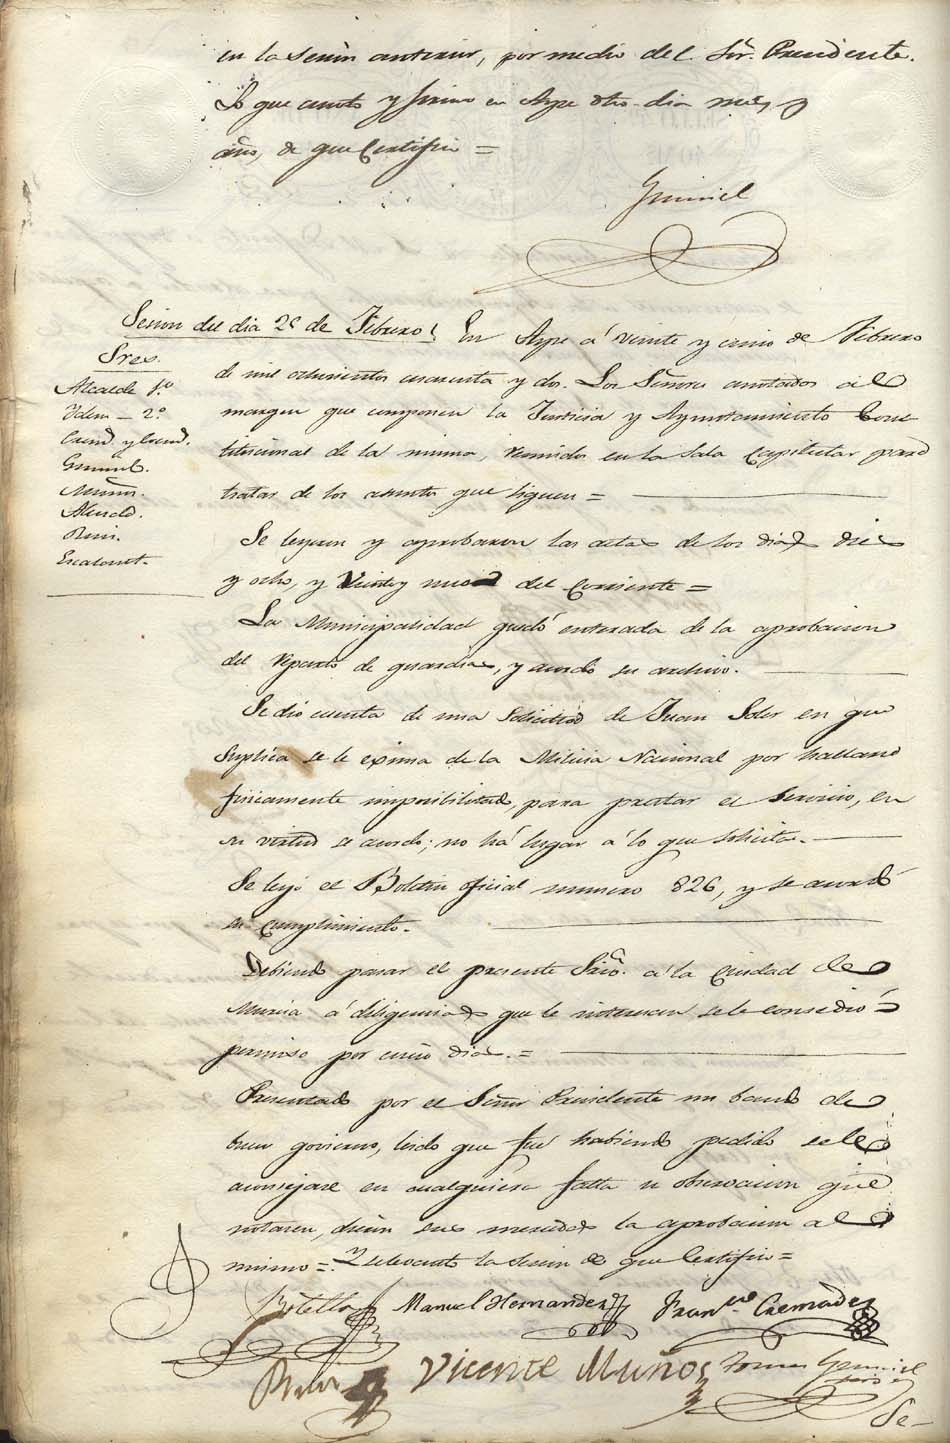 en la sesion anterior, por medio del Sór. Presidente.
Lo que anoto y firmo en Aspe dho. dia mes, y
año, de que Certifico =
Gumiel
Sesion del dia 25 de Febrero
Sres.
Alcalde 1.º
Ydem _ 2º
Muñoz.
Escalonet.
En Aspe á veinte y cinco de Febrero
de mil ochocientos cuarenta y dos. Los Señores anotados al
margen que componen la Justicia y Ayuntamiento Cons
titucional de la misma, reunidos en la Sala Capitular para
tratar de los asuntos que siguen =
Se leyeron y aprobaron las actas de los dias diez
y ocho, y Veinte y del Corriente =
La Municipalidad quedó enterada de la aprobacion
del reparto de guardias, y acordó su archivo.
Se dio cuenta de una Solicitud de Juan Soler en que
Suplica se le exima de la Milicia Nacional por hallarse
fisicamente imposibilitado, para prestar el Servicio, en
su virtud se acordo; no há lugar á lo que solicita.
Se leyó el Boletin oficial numero 826, y se acordó
su cumplimiento.
Debiendo pasar el presente Srio. á la Ciudad de
Murcia á diligencias que le interesan se le consedió
permiso por cinco dias. =
Presentado por el Señor Presidente un bando de
buen govierno, leido que fue habiendo pedido se le
aconsejase en cualquiera falta u observacion que
notaren, dieron sus mercedes la aprobacion al
mismo =. Y se levantó la sesion de que Certifico =
Botella Manuel Hernandez Franco. Cremades
Vicente Muños Tomas Gumiel
Srio
Se_